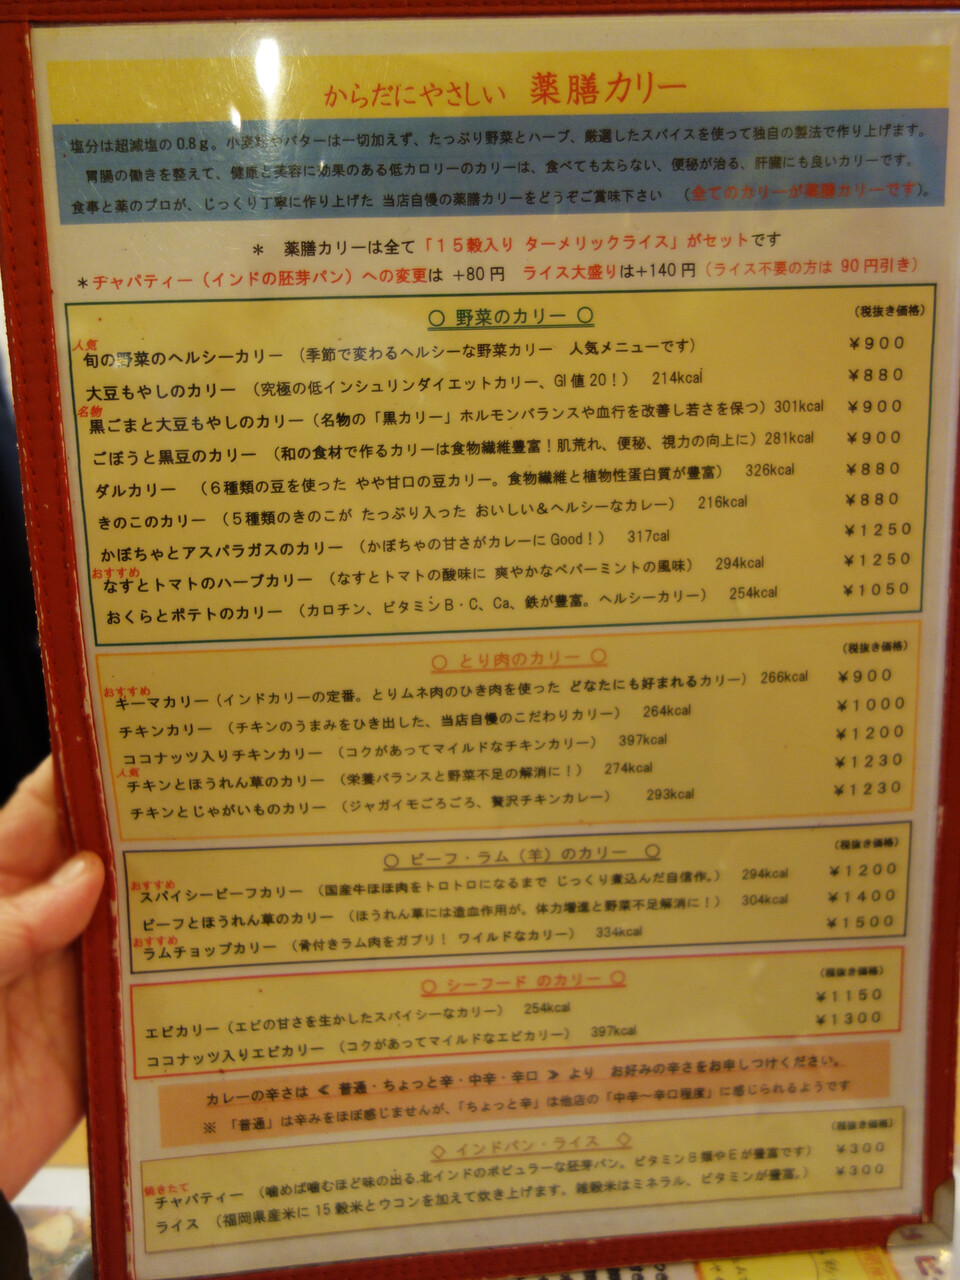 からだにやさしい 薬膳カリー
塩分は超減塩の0.8g。小麦粉やバターは一切加えず、たっぷり野菜とハーブ、厳選したスパイスを使って独自の製法で作り上げます。
胃腸の働きを整えて、健康と美容に効果のある低カロリーのカリーは、食べても太らない、便秘が治る、肝臓にも良いカリーです。
食事と薬のプロが、じっくり丁寧に作り上げた 当店自慢の薬膳カリーをどうぞご賞味下さい (全てのカリーが薬膳カリーです)。
* 薬膳カリーは全て「15穀入り ターメリックライス」がセットです
*ヂャパティー(インドの胚芽パン)への変更は +80円 ライス大盛りは+140円(ライス不要の方は 90円引き)
○ 野菜のカリー ○ (税抜き価格)
人気
旬の野菜のヘルシーカリー (季節で変わるヘルシーな野菜カリー 人気メニューです) ¥900
大豆もやしのカリー (究極の低インシュリンダイエットカリー、GI値20!) 214kcal ¥880
名物
黒ごまと大豆もやしのカリー(名物の「黒カリー」ホルモンバランスや血行を改善し若さを保つ)301kcal ¥900
ごぼうと黒豆のカリー (和の食材で作るカリーは食物繊維豊富!肌荒れ、便秘、視力の向上に)281kcal ¥900
ダルカリー (6種類の豆を使った やや甘口の豆カリー。食物繊維と植物性蛋白質が豊富) 326kcal ¥880
きのこのカリー (5種類のきのこが たっぷり入った おいしい&ヘルシーなカレー) 216kcal ¥880
かぼちゃとアスパラガスのカリー (かぼちゃの甘さがカレーにGood!) 317cal ¥1250
おすすめ
なすとトマトのハーブカリー (なすとトマトの酸味に 爽やかなペパーミントの風味) 294kcal ¥1250
おくらとポテトのカリー (カロチン、ビタミンB・C、Ca、鉄が豊富。ヘルシーカリー) 254kcal ¥1050
○ とり肉のカリー ○ (税抜き価格)
おすすめ
キーマカリー(インドカリーの定番。とりムネ肉のひき肉を使った どなたにも好まれるカリー) 266kcal ¥900
チキンカリー (チキンのうまみをひき出した、当店自慢のこだわりカリー) 264kcal ¥1000
ココナッツ入りチキンカリー (コクがあってマイルドなチキンカリー) 397kcal ¥1200
人気
チキンとほうれん草のカリー (栄養バランスと野菜不足の解消に!) 274kcal ¥1230
チキンとじゃがいものカリー (ジャガイモごろごろ、贅沢チキンカレー) 293kcal ¥1230
○ ビーフ・ラム(羊)のカリー ○ (税抜き価格)
おすすめ
スパイシービーフカリー (国産牛ほほ肉をトロトロになるまで じっくり煮込んだ自信作。) 294kcal ¥1200
ビーフとほうれん草のカリー (ほうれん草には造血作用が。体力増進と野菜不足解消に!) 304kcal ¥1400
おすすめ
ラムチョップカリー (骨付きラム肉をガブリ! ワイルドなカリー) 334kcal ¥1500
○ シーフード のカリー ○ (税抜き価格)
エビカリー(エビの甘さを生かしたスパイシーなカリー) 254kcal ¥1150
ココナッツ入りエビカリー (コクがあってマイルドなエビカリー) 397kcal ¥1300
カレーの辛さは ≪ 普通・ちょっと辛・中辛・辛口 ≫ より お好みの辛さをお申しつけください。
※ 「普通」は辛みをほぼ感じませんが、「ちょっと辛」は他店の「中辛~辛口程度」に感じられるようです
◇ インドパン・ライス ◇ (税抜き価格)
焼きたて
チャパティー (噛めば噛むほど味の出る,北インドのポピュラーな胚芽パン。ビタミンB類やEが豊富です) ¥300
ライス (福岡県産米に15穀米とウコンを加えて炊き上げます。雑穀米はミネラル、ビタミンが豊富。) ¥300